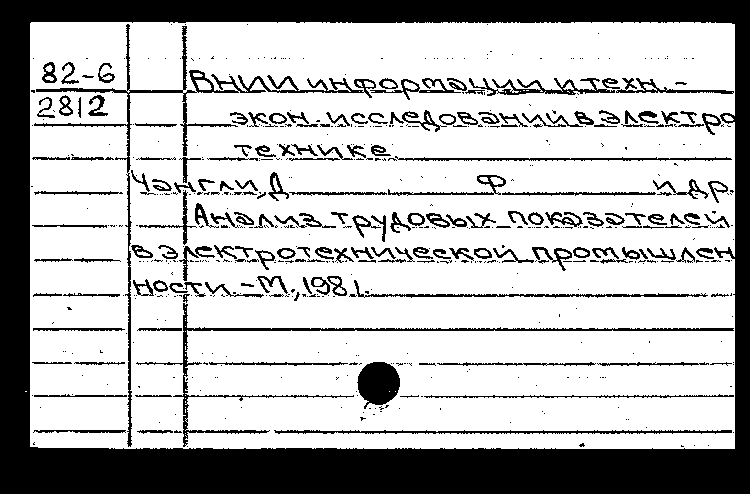 82-6
2812
ВНИИ информации и техн.-
экон. исследований в электро
технике
Чэнгли, Д Ф и др.
Анализ трудовых показателей
в электротехнической промышлен
ности. - М., 1981.